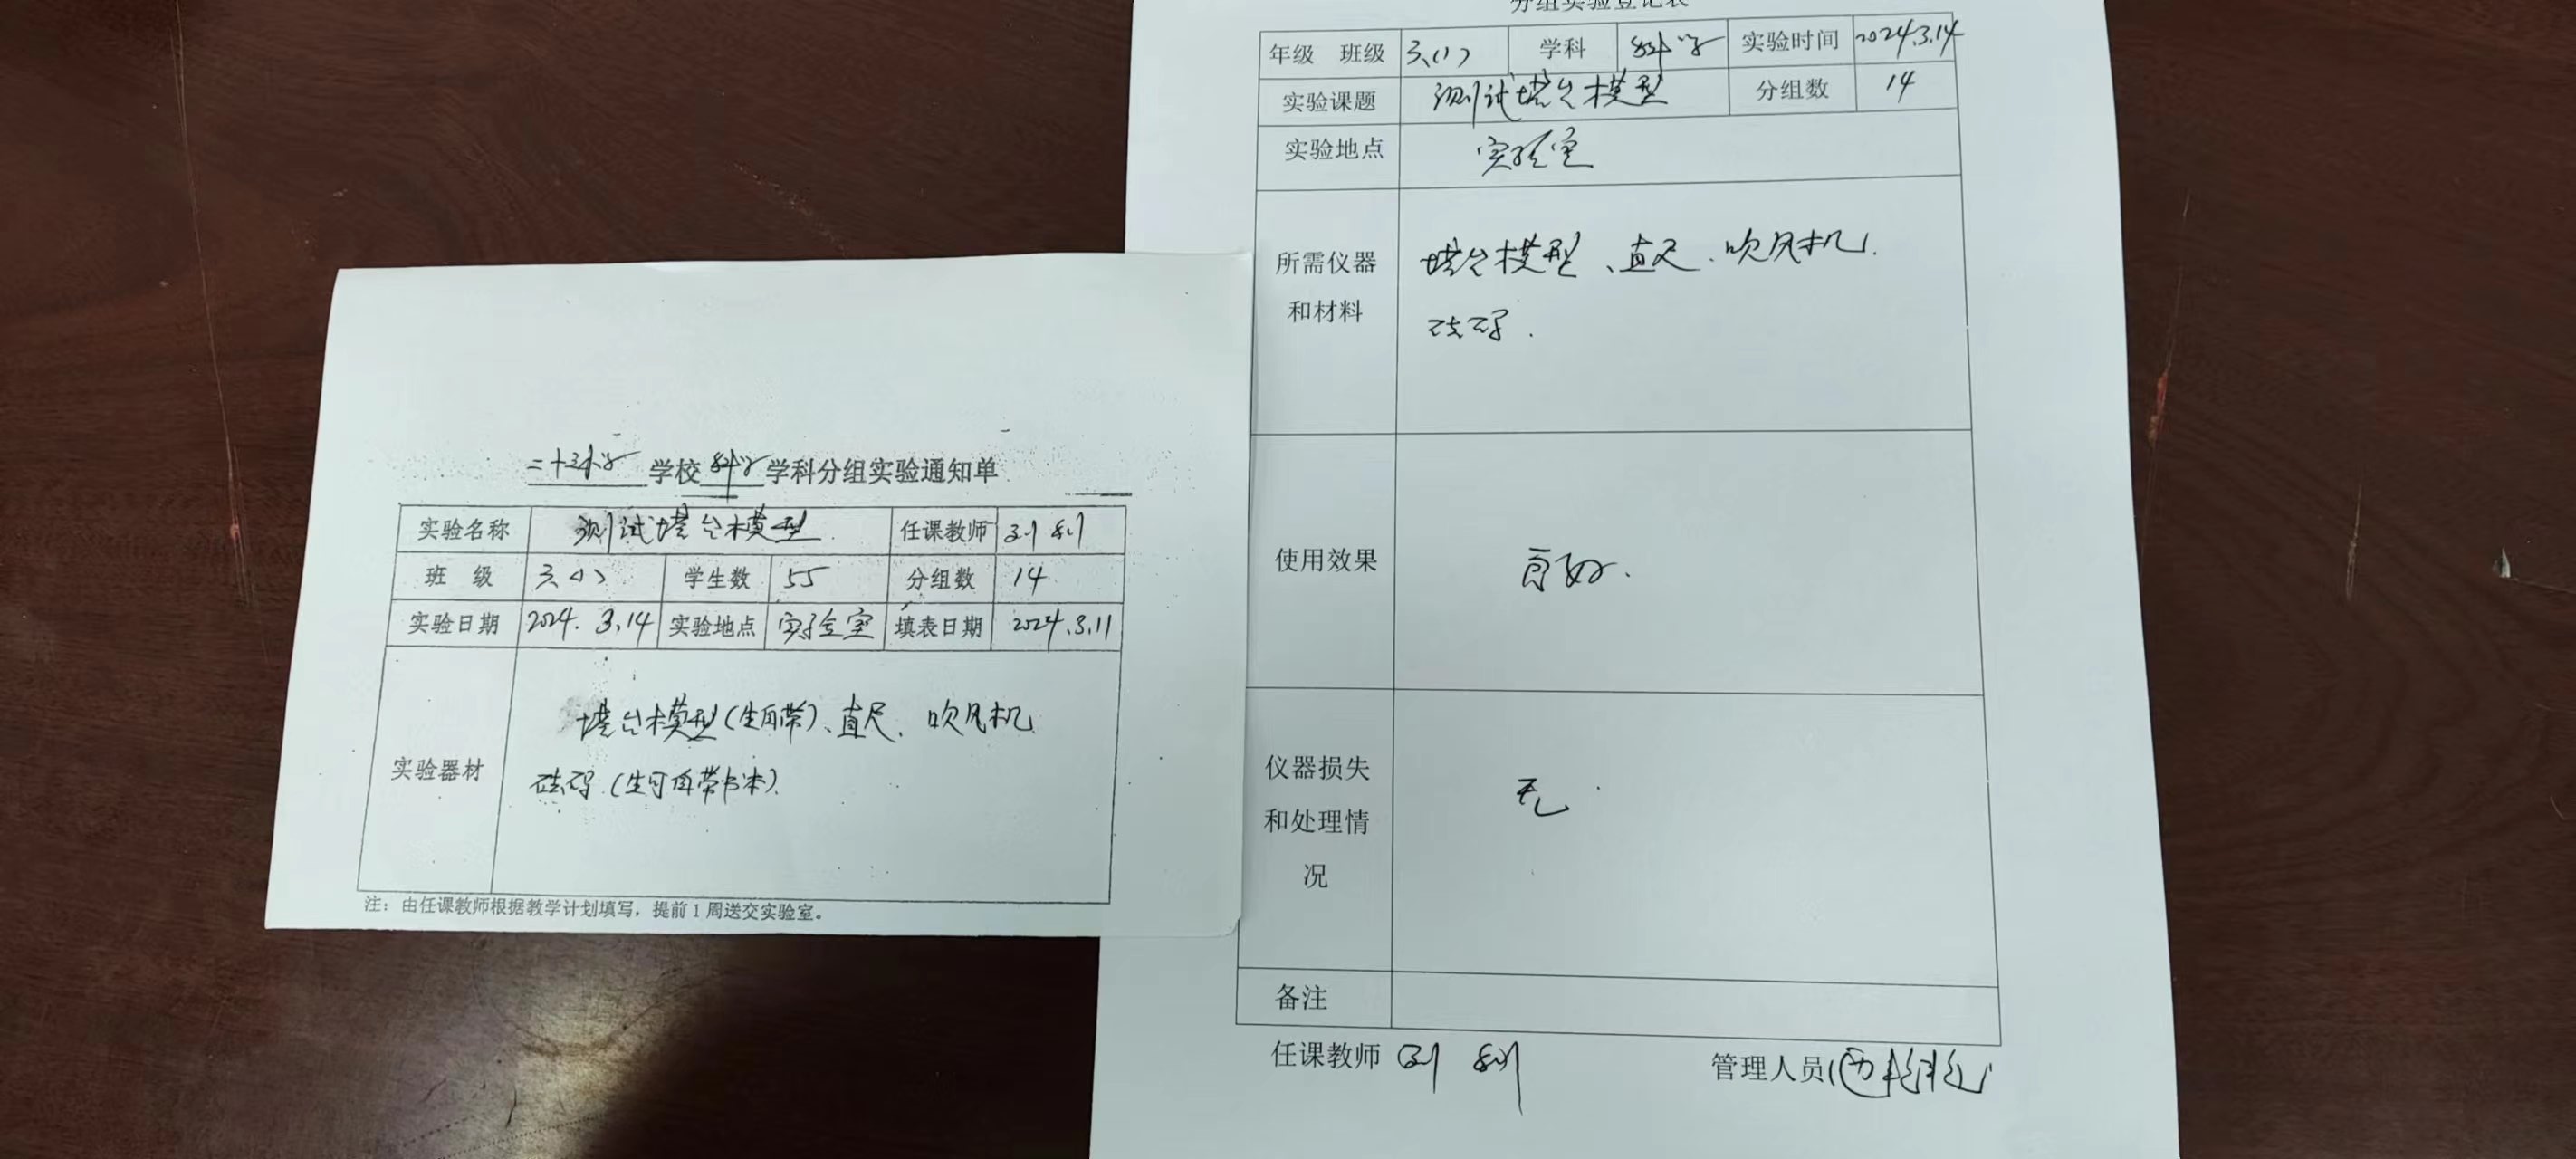 二十三小学 学校 科学 学科分组实验通知单
实验名称 测试塔台模型 任课教师 刘
班 级 学生数 55 分组数 14
实验日期 2024.3.14 实验地点 实验室 填表日期 2024.3.11
实验器材
塔台模型(生自带)、直尺、吹风机
砝码.(生可自带书本).
注：由任课教师根据教学计划填写，提前1周送交实验室。
分组实验登记表
年级 班级 学科 科学 实验时间 2024.3.14
实验课题 测试塔台模型 分组数 14
实验地点 实验室
所需仪器
和材料
塔台模型、直尺、吹风机.
砝码.
使用效果 良好.
仪器损失
和处理情
况
无.
备注
任课教师 刘
管理人员